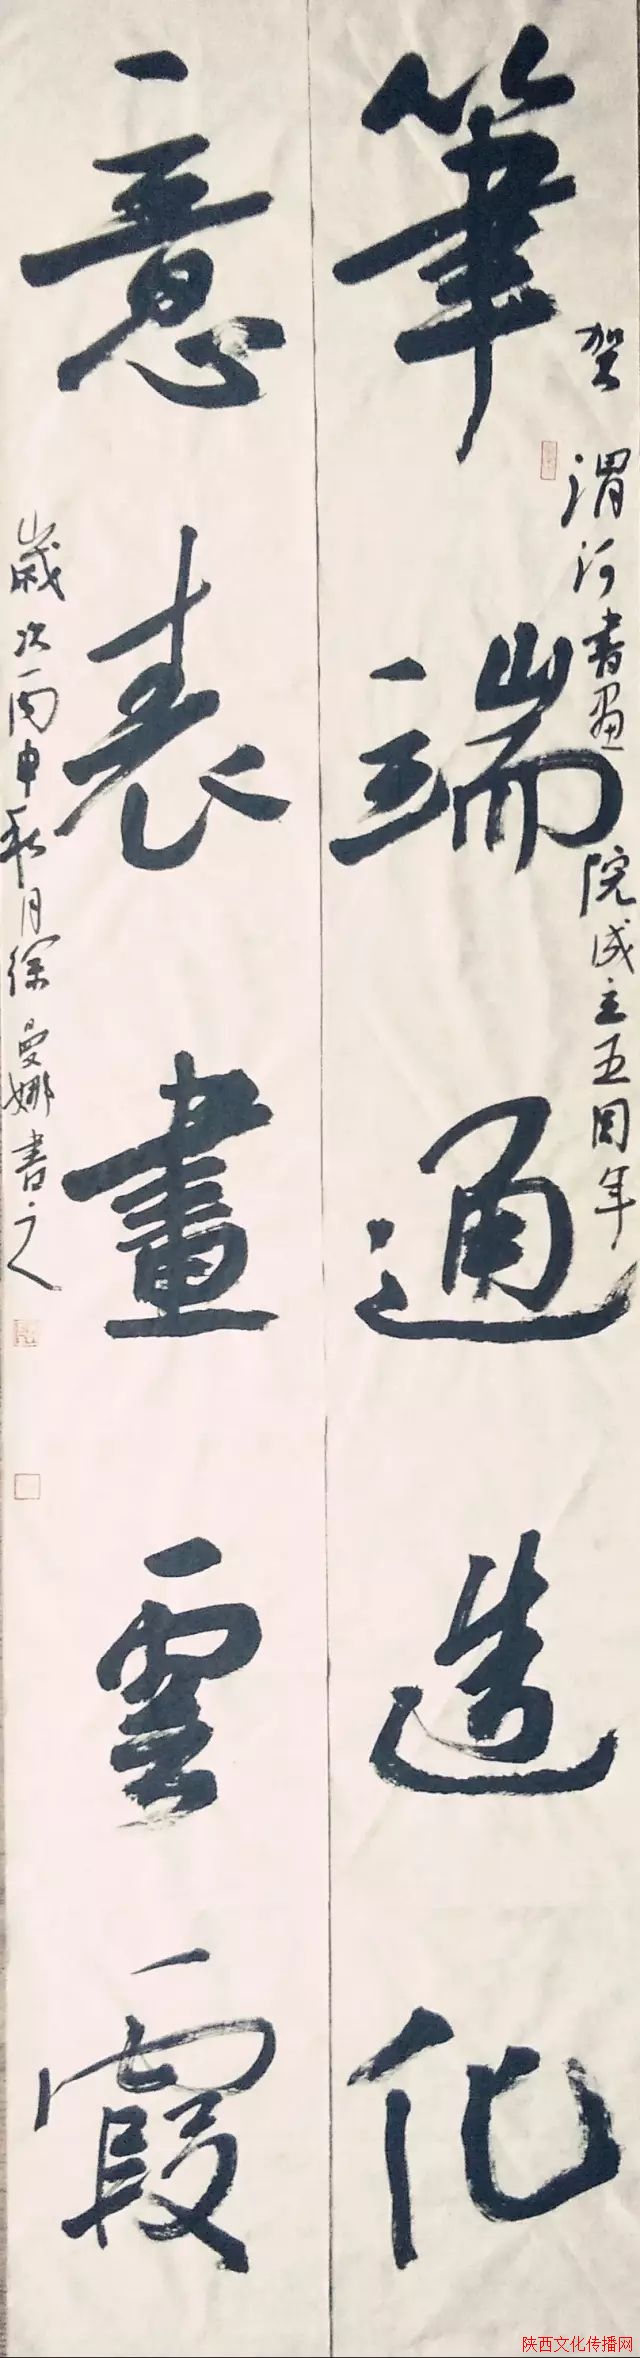 賀渭河書畫院成立五周年
筆端通造化
意表畫雲霞
歲次丙申秋月徐曼娜書之
陕西文化传播网